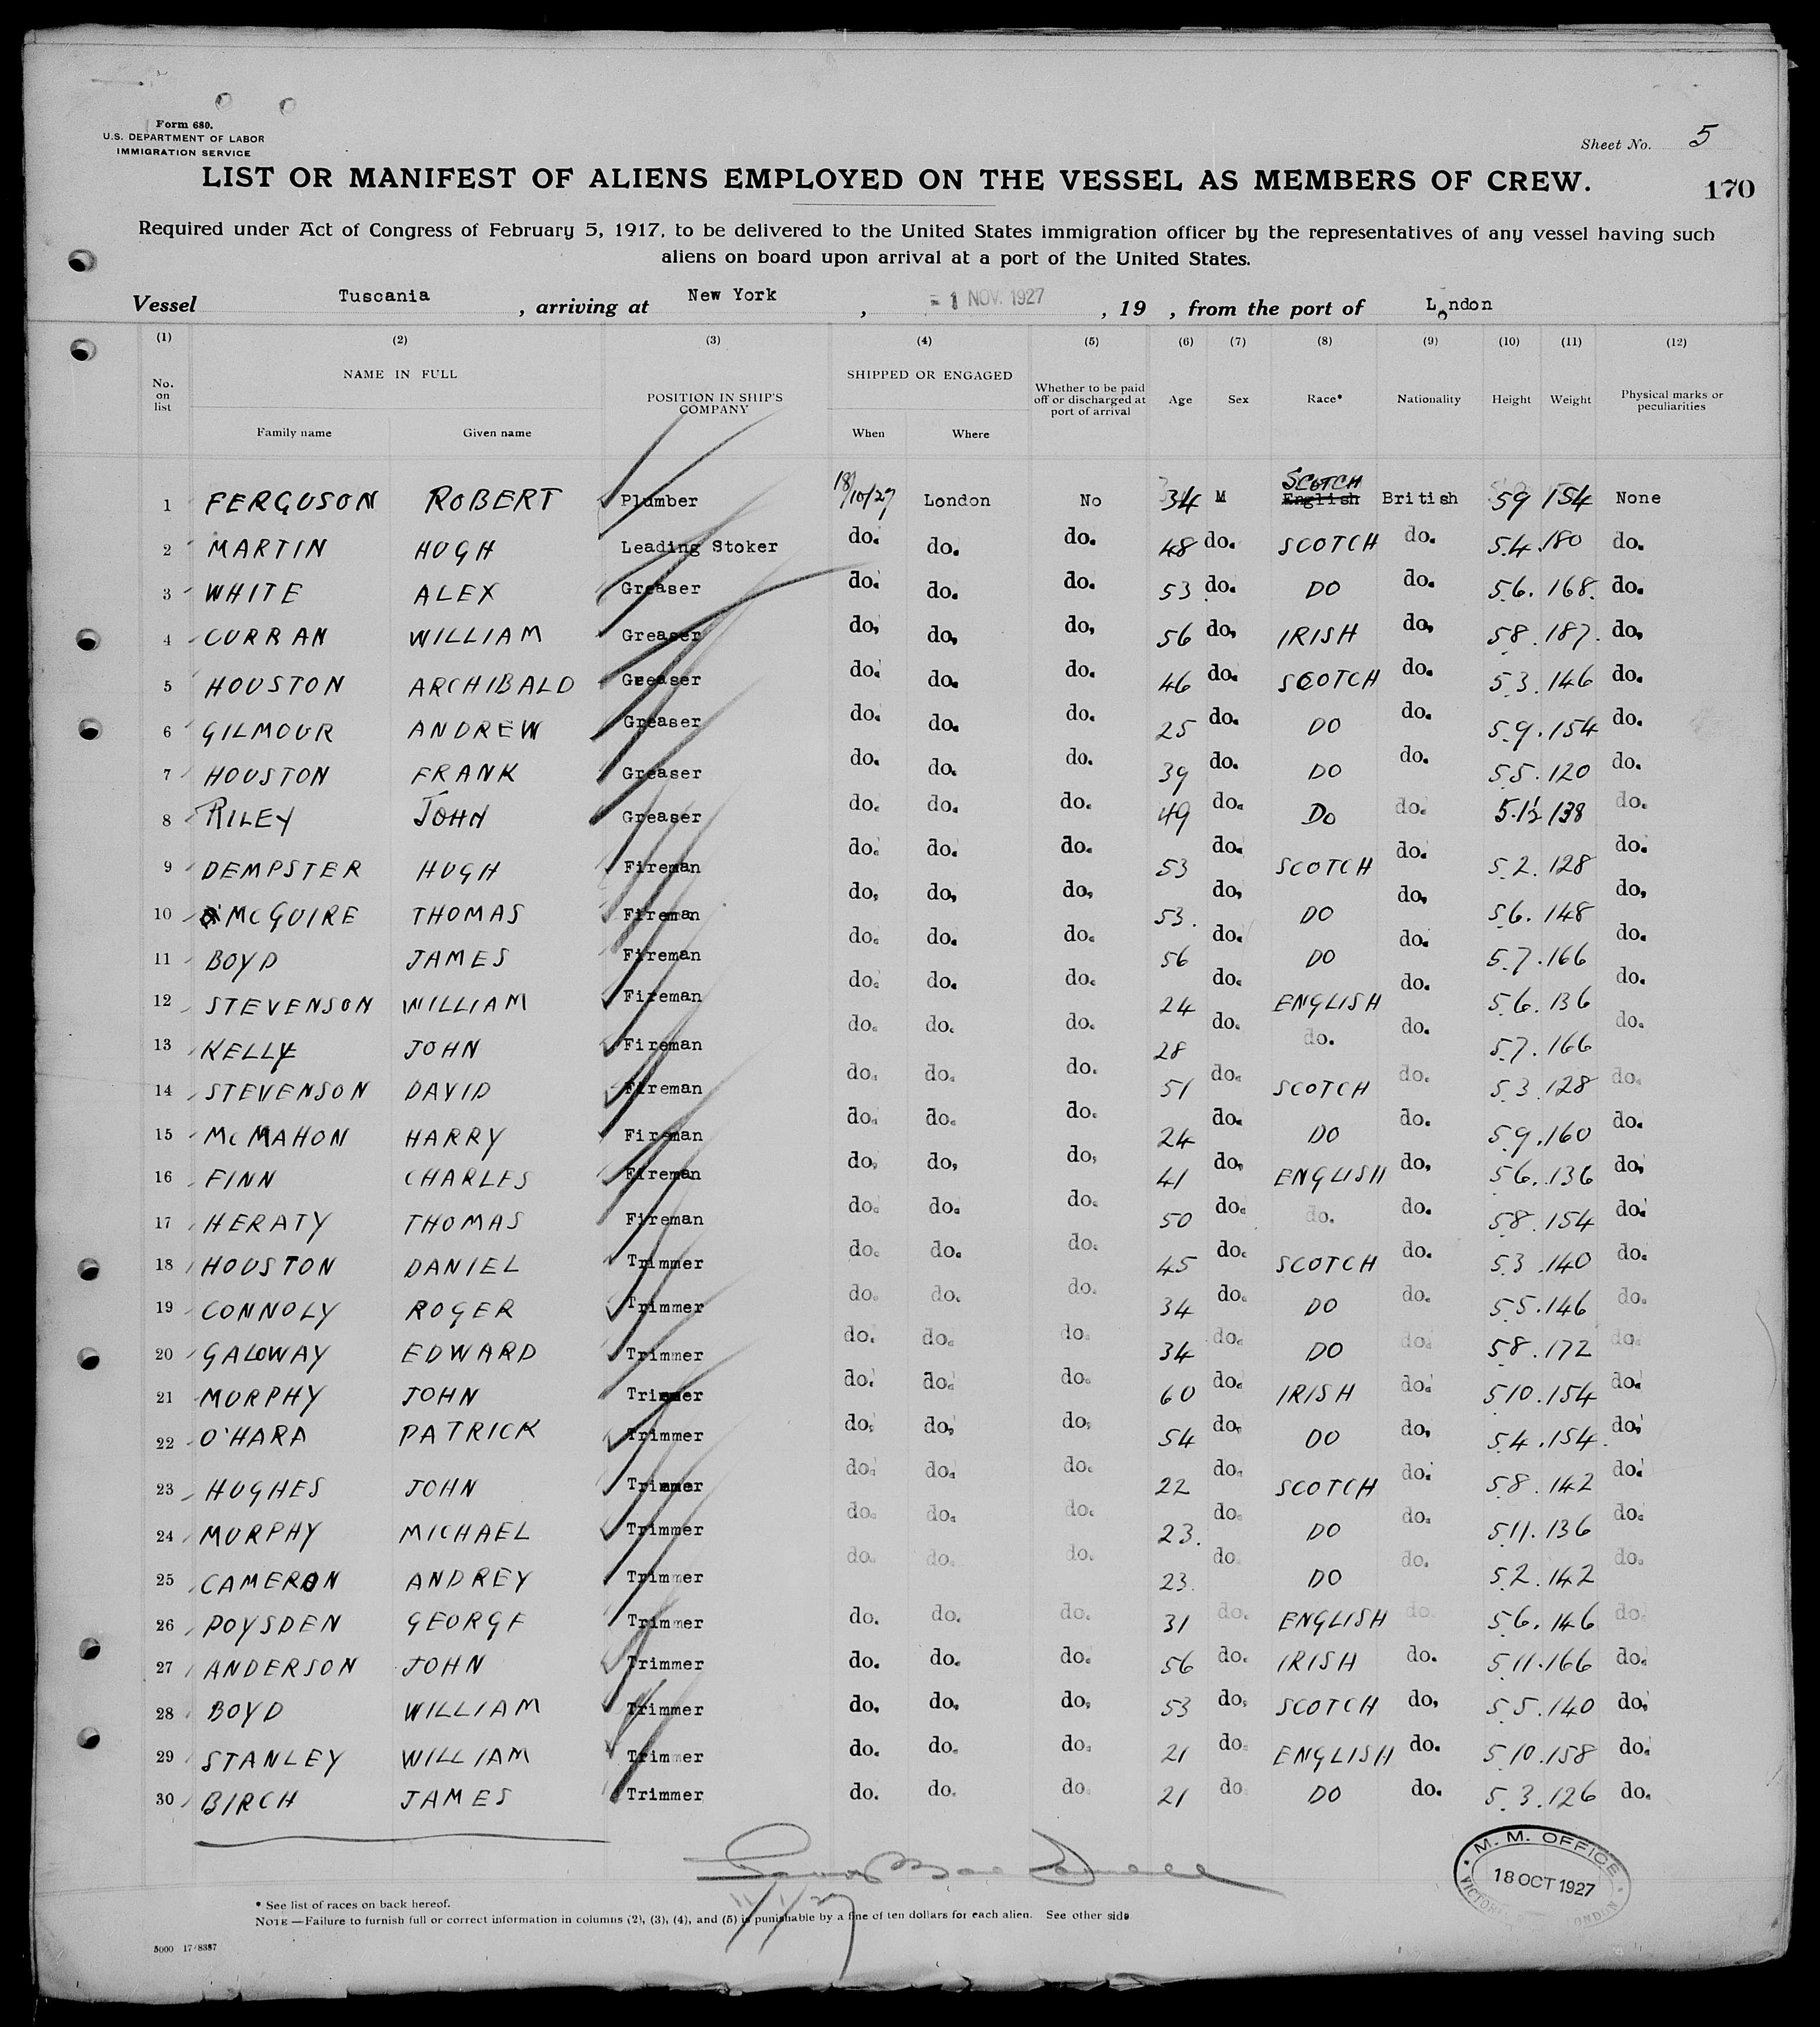 Form 680.
U.S. DEPARTMENT OF LABOR
IMMIGRATION SERVICE
Sheet No. 5
LIST OR MANIFEST OF ALIENS EMPLOYED ON THE VESSEL AS MEMBERS OF CREW.
170
Required under Act of Congress of February 5, 1917, to be delivered to the United States immigration officer by the representatives of any vessel having such
aliens on board upon arrival at a port of the United States.
Vessel Tuscania, arriving at New York, 1 NOV. 1927, 19 , from the port of London
(1) (2) (3) (4) (5) (6) (7) (8) (9) (10) (11) (12)
No. on list NAME IN FULL POSITION IN SHIP'S COMPANY SHIPPED OR ENGAGED Whether to be paid off or discharged at port of arrival Age Sex Race* Nationality Height Weight Physical marks or peculiarities
Family name Given name When Where
SCOTCH
1 FERGUSON ROBERT Plumber 18/10/27 London No 34 M English British 59 154 None
2 MARTIN HUGH Leading Stoker do. do. do. 48 do. SCOTCH do. 5.4. 180 do.
3 WHITE ALEX Greaser do. do. do. 53 do. DO do. 5.6. 168. do.
4 CURRAN WILLIAM Greaser do. do. do. 56 do. IRISH do. 58. 187. do.
5 HOUSTON ARCHIBALD Greaser do. do. do. 46 do. SCOTCH do. 5.3. 146 do.
6 GILMOUR ANDREW Greaser do. do. do. 25 do. DO do. 5.9. 154 do.
7 HOUSTON FRANK Greaser do. do. do. 39 do. DO do. 5.5. 120 do.
8 RILEY JOHN Greaser do. do. do. 49 do. DO do. 5.1½ 138 do.
9 DEMPSTER HUGH Fireman do. do. do. 53 do. SCOTCH do. 5.2. 128 do.
10 McGUIRE THOMAS Fireman do. do. do. 53. do. DO do. 5.6. 148 do.
11 BOYD JAMES Fireman do. do. do. 56 do. DO do. 5.7. 166 do.
12 STEVENSON WILLIAM Fireman do. do. do. 24 do. ENGLISH do. 5.6. 136 do.
13 KELLY JOHN Fireman do. do. do. 28 do. do. do. 5.7. 166 do.
14 STEVENSON DAVID Fireman do. do. do. 51 do. SCOTCH do. 5.3 .128 do.
15 McMAHON HARRY Fireman do. do. do. 24 do. DO do. 5.9. 160 do.
16 FINN CHARLES Fireman do. do. do. 41 do. ENGLISH do. 5.6. 136 do.
17 HERATY THOMAS Fireman do. do. do. 50 do. do. do. 5.8. 154 do.
18 HOUSTON DANIEL Trimmer do. do. do. 45 do. SCOTCH do. 5.3 .140 do.
19 CONNOLY ROGER Trimmer do. do. do. 34 do. DO do. 5.5. 146 do.
20 GALOWAY EDWARD Trimmer do. do. do. 34 do. DO do. 5.8. 172 do.
21 MURPHY JOHN Trimmer do. do. do. 60 do. IRISH do. 5.10. 154 do.
22 O'HARA PATRICK Trimmer do. do. do. 54 do. DO do. 5.4. 154. do.
23 HUGHES JOHN Trimmer do. do. do. 22 do. SCOTCH do. 5.8. 142 do.
24 MURPHY MICHAEL Trimmer do. do. do. 23. do. DO do. 5.11. 136 do.
25 CAMERON ANDREY Trimmer do. do. do. 23. do. DO do. 5.2. 142 do.
26 POYSDEN GEORGE Trimmer do. do. do. 31 do. ENGLISH do. 5.6. 146 do.
27 ANDERSON JOHN Trimmer do. do. do. 56 do. IRISH do. 5.11. 166 do.
28 BOYD WILLIAM Trimmer do. do. do. 53 do. SCOTCH do. 5.5. 140 do.
29 STANLEY WILLIAM Trimmer do. do. do. 21 do. ENGLISH do. 5.10. 158 do.
30 BIRCH JAMES Trimmer do. do. do. 21 do. DO do. 5.3. 126 do.
M. M. OFFICE
18 OCT 1927
LONDON
11/1/27
* See list of races on back hereof.
NOTE—Failure to furnish full or correct information in columns (2), (3), (4), and (5) is punishable by a fine of ten dollars for each alien. See other side
5000 17/8387